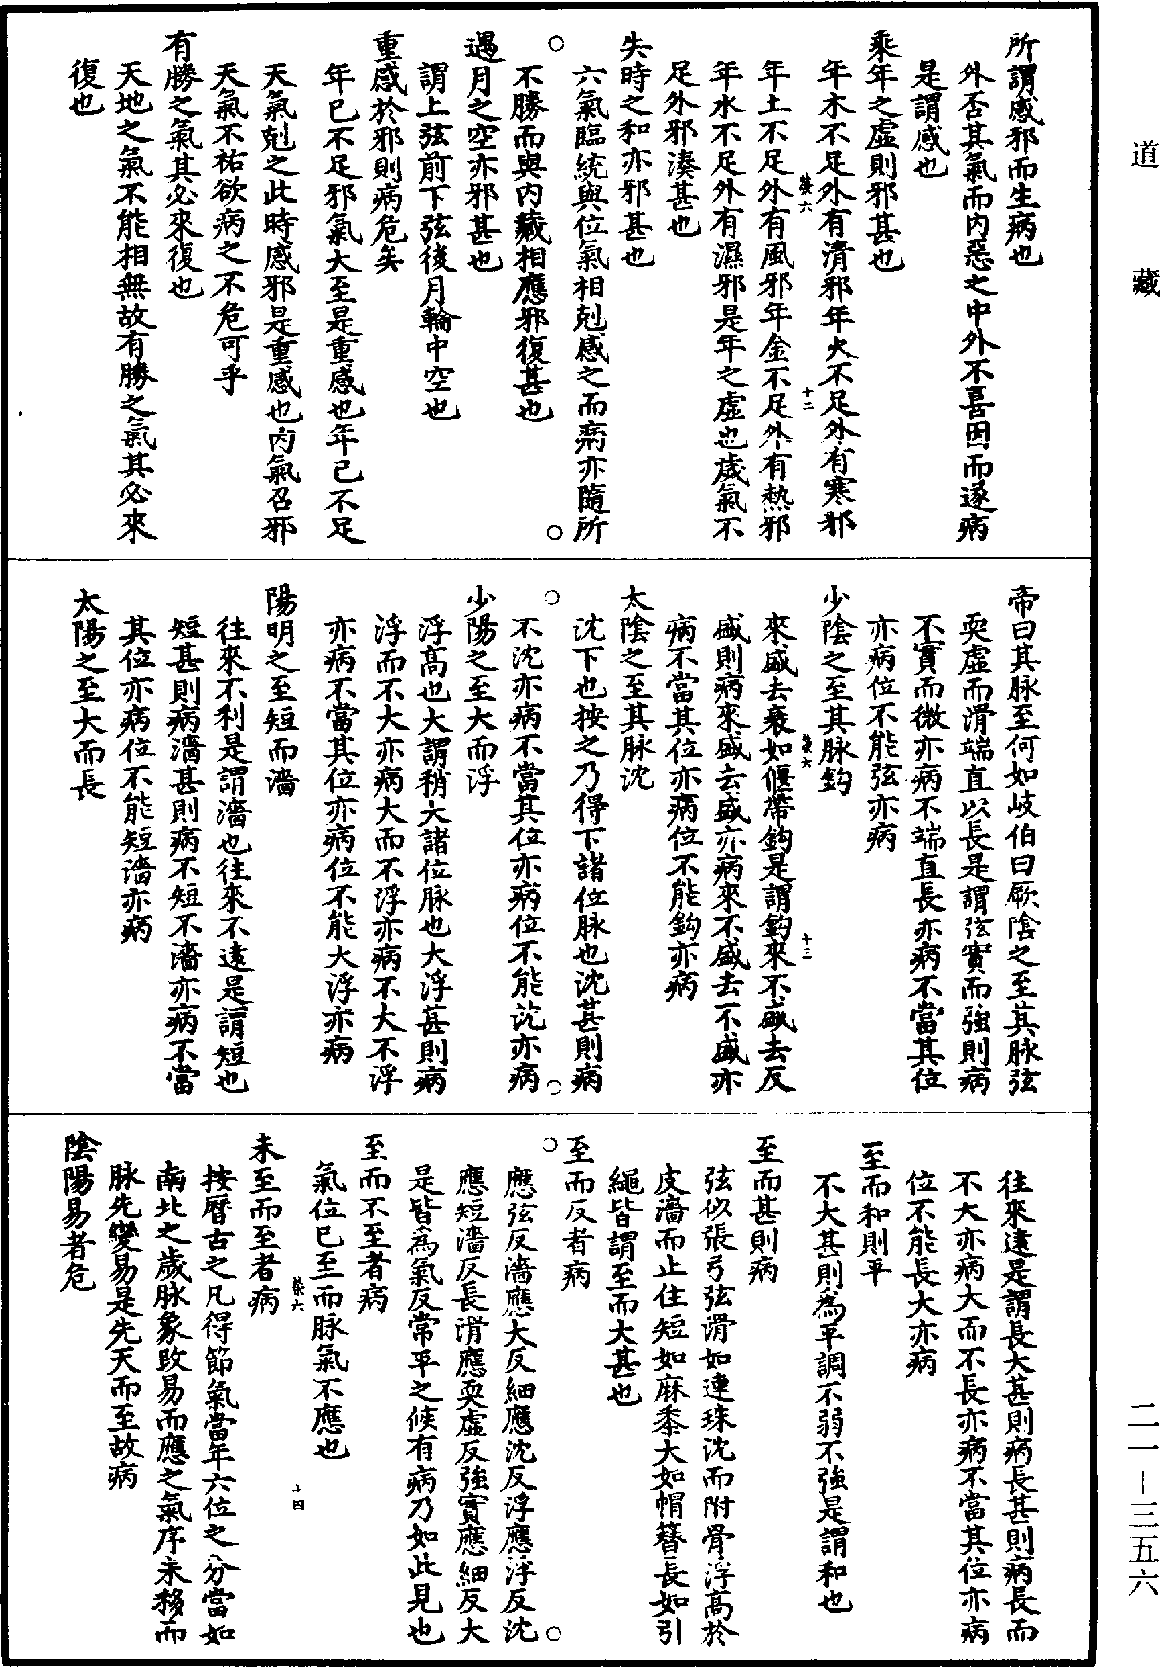 道藏
所謂感邪而生病也
外否其氣而內惡之中外不喜因而遂病
是謂感也
乘年之虛則邪甚也
年木不足外有清邪年火不足外有寒邪
年土不足外有風邪年金不足外有熱邪
年水不足外有濕邪是年之虛也歲氣不
足外邪湊甚也
失時之和亦邪甚也
六氣臨統與位氣相剋感之而病亦隨所
不勝而與內藏相應邪復甚也
遇月之空亦邪甚也
謂上弦前下弦後月輪中空也
重感於邪則病危矣
年已不足邪氣大至是重感也年已不足
天氣剋之此時感邪是重感也內氣召邪
天氣不祐欲病之不危可乎
有勝之氣其必來復也
天地之氣不能相無故有勝之氣其必來
復也
帝曰其脉至何如岐伯曰厥陰之至其脉弦
耎虛而滑端直以長是謂弦實而強則病
不實而微亦病不端直長亦病不當其位
亦病位不能弦亦病
少陰之至其脉鈎
來盛去衰如偃帶鈎是謂鈎來不盛去反
盛則病來盛去盛亦病來不盛去不盛亦
病不當其位亦病位不能鈎亦病
太陰之至其脉沈
沈下也按之乃得下諸位脉也沈甚則病
不沈亦病不當其位亦病位不能沈亦病
少陽之至大而浮
浮高也大謂稍大諸位脉也大浮甚則病
浮而不大亦病大而不浮亦病不大不浮
亦病不當其位亦病位不能大浮亦病
陽明之至短而濇
往來不利是謂濇也往來不遠是謂短也
短甚則病濇甚則病不短不濇亦病不當
其位亦病位不能短濇亦病
太陽之至大而長
往來遠是謂長大甚則病長甚則病長而
不大亦病大而不長亦病不當其位亦病
位不能長大亦病
至而和則平
不大甚則為平調不弱不強是謂和也
至而甚則病
弦似張弓弦滑如連珠沈而附骨浮高於
皮濇而止住短如麻黍大如帽簪長如引
繩皆謂至而大甚也
至而反者病
應弦反濇應大反細應沈反浮應浮反沈
應短濇反長滑應耎虛反強實應細反大
是皆為氣反常平之候有病乃如此見也
至而不至者病
氣位已至而脉氣不應也
未至而至者病
按曆古之凡得節氣當年六位之分當如
南北之歲脉象改易而應之氣序未移而
脉先變易是先天而至故病
陰陽易者危
二一－三五六